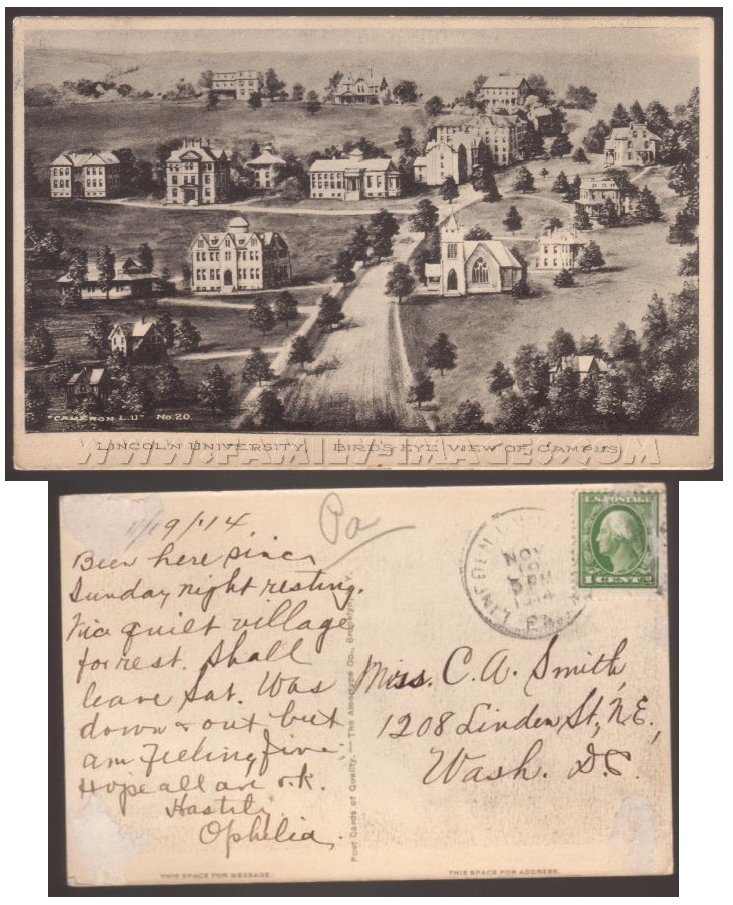 "CAMERON L.U" No.20.
LINCOLN UNIVERSITY. BIRD'S EYE VIEW OF CAMPUS
WWW.FAMILY-IMAGES.COM
11/19/'14.
Pa
Been here since
Sunday night resting.
Nice quilt village
for rest. Shall
leave Sat. Was
down & out but
am feeling fine.
Hope all are o.k.
Hastily
Ophelia.
THIS SPACE FOR MESSAGE.
Post Cards of Quality. — The Albertype Co., Brooklyn, N.Y.
NOV
PM
PA
U.S. POSTAGE
1 CENT
Miss. C. A. Smith,
1208 Linden St., N.E.,
Wash. D.C.
THIS SPACE FOR ADDRESS.